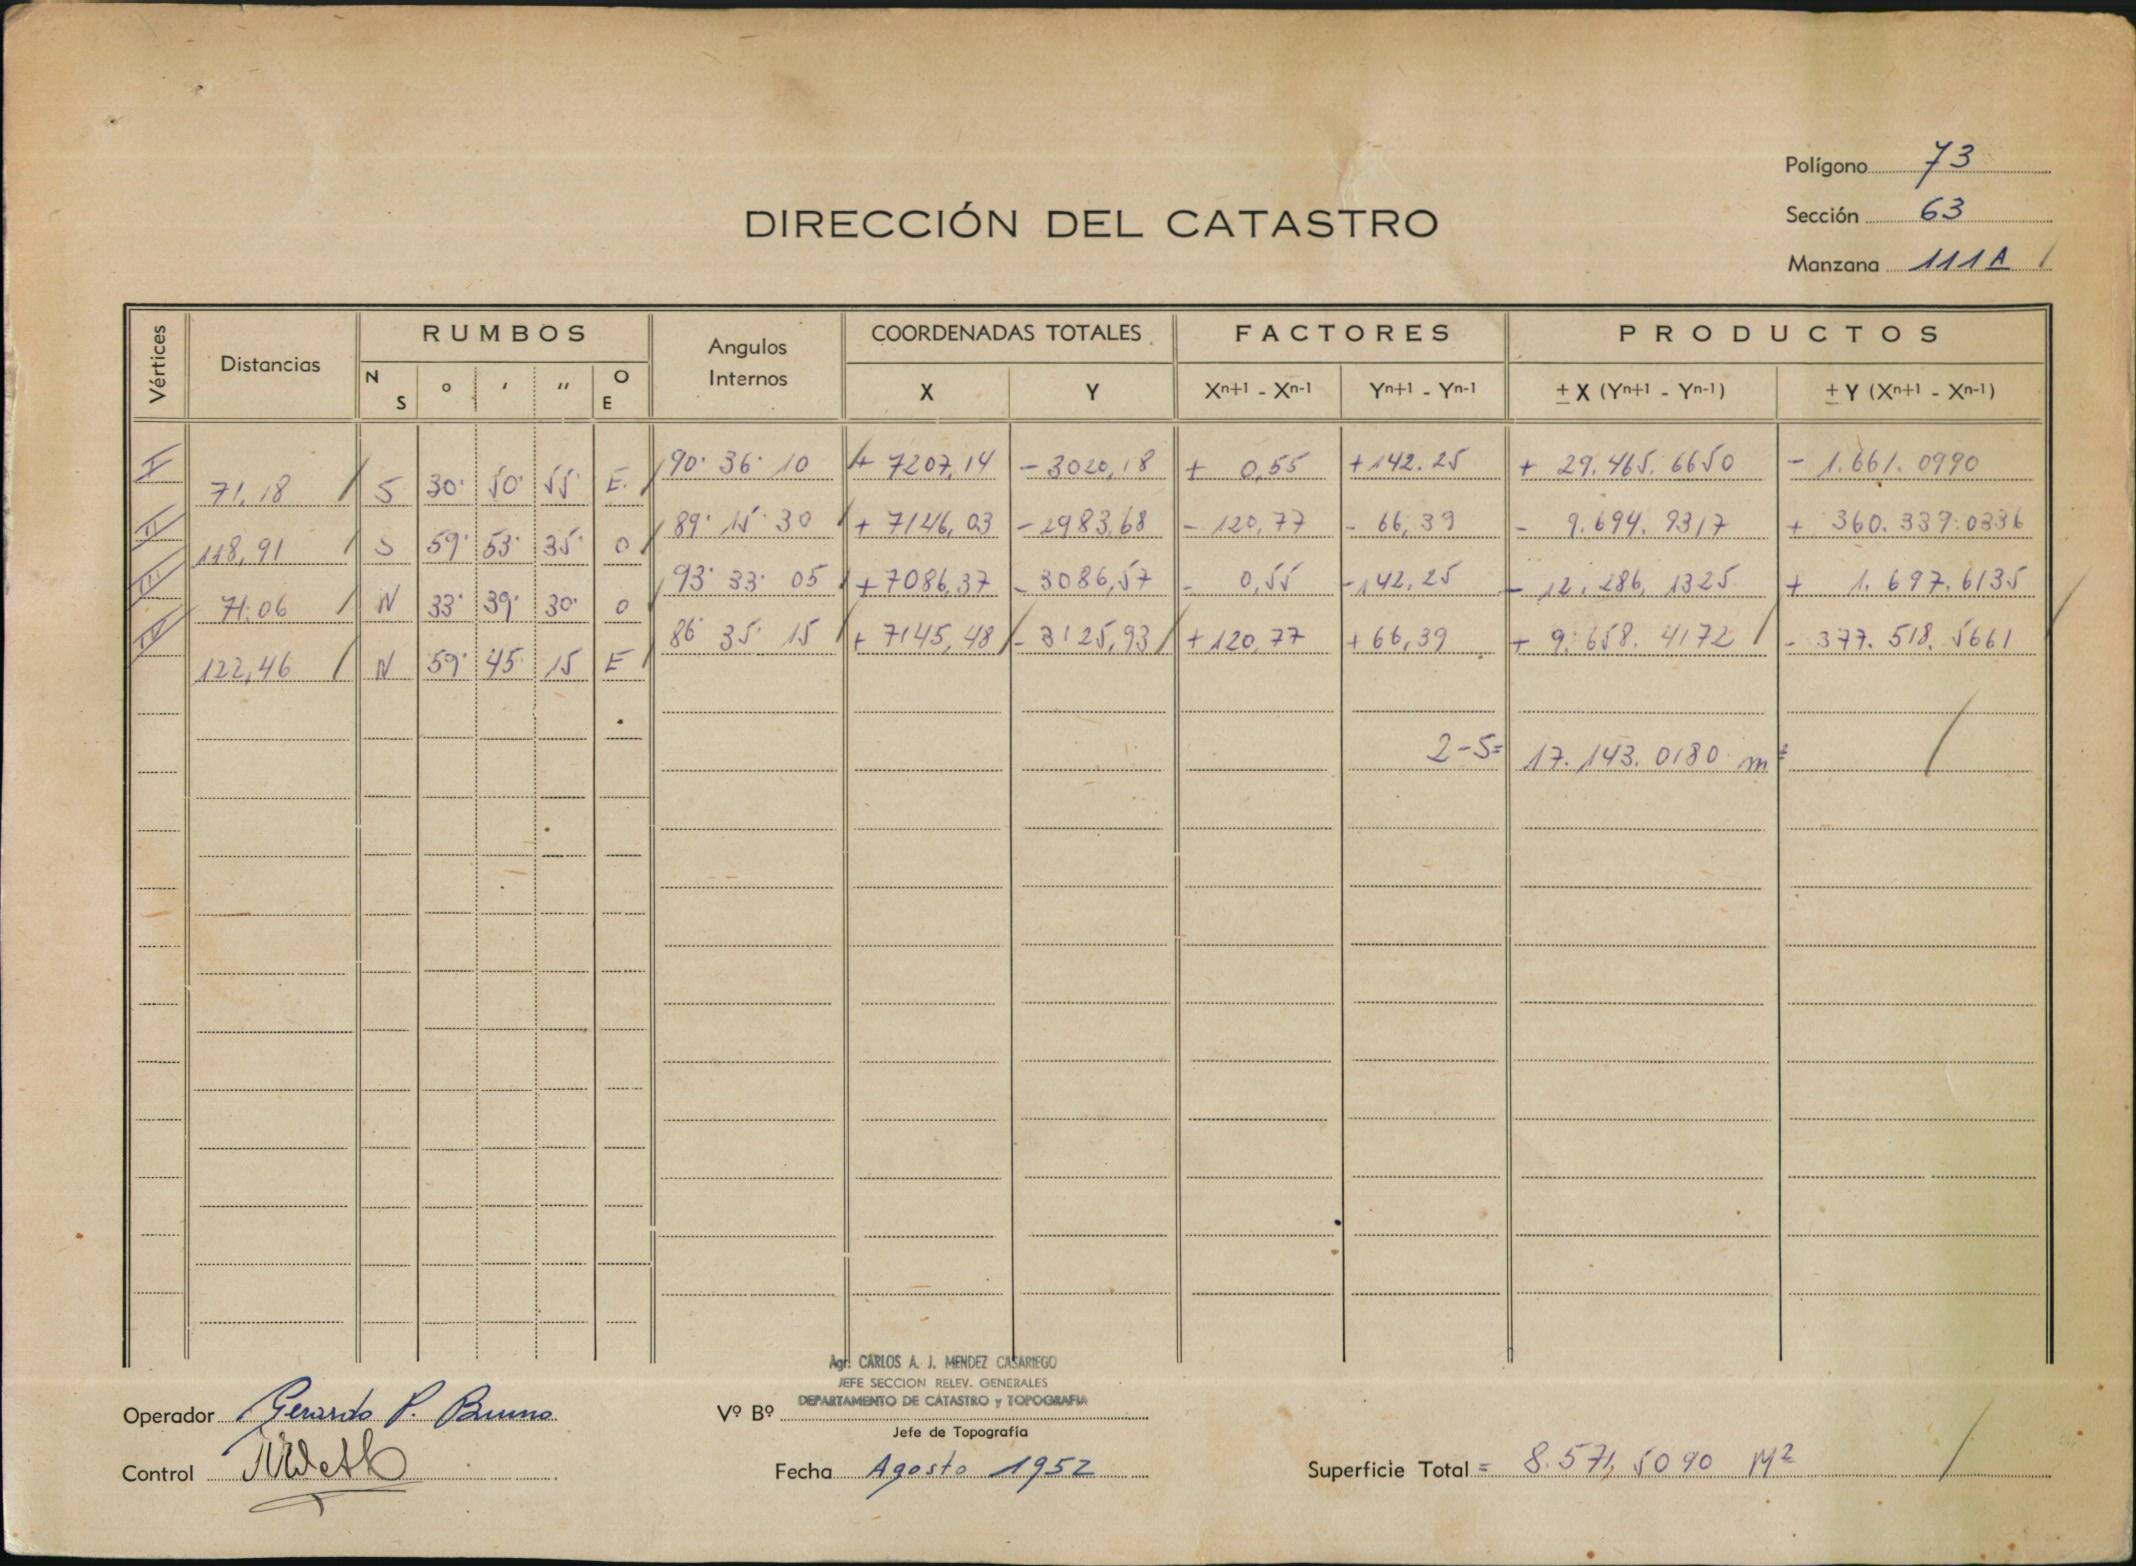 Polígono 73
Sección 63
Manzana 111A
DIRECCIÓN DEL CATASTRO
Vértices Distancias RUMBOS Angulos Internos COORDENADAS TOTALES FACTORES PRODUCTOS
N S ° ' '' O E X Y Xn+1 - Xn-1 Yn+1 - Yn-1 ± X (Yn+1 - Yn-1) ± Y (Xn+1 - Xn-1)
I 90° 36' 10 + 7207,14 - 3020,18 + 0,55 + 142.25 + 29.465.6650 - 1.661.0990
71,18 S 30° 50' 55'' E.
II 89° 15' 30 + 7126,03 - 2983,68 - 120,77 - 66,39 - 9.694.9317 + 360.339.0336
118,91 S 59° 53' 35'' O
III 93° 33' 05 + 7086,37 - 3086,57 - 0,55 - 142,25 - 12.286,1325 + 1.697.6135
71.06 N 33° 39' 30'' O
IV 86° 35' 15 + 7145,48 - 3125,93 + 120,77 + 66,39 + 9.658.4172 - 377.518.5661
122,46 N 59° 45' 15 E
2-S= 17.143.0180 m²
Agr. CARLOS A. J. MENDEZ CASARIEGO
JEFE SECCION RELEV. GENERALES
DEPARTAMENTO DE CATASTRO y TOPOGRAFIA
Operador Gerardo P. Bruno
Vº Bº
Jefe de Topografía
Control
Fecha Agosto 1952
Superficie Total = 8.571,5090 M²